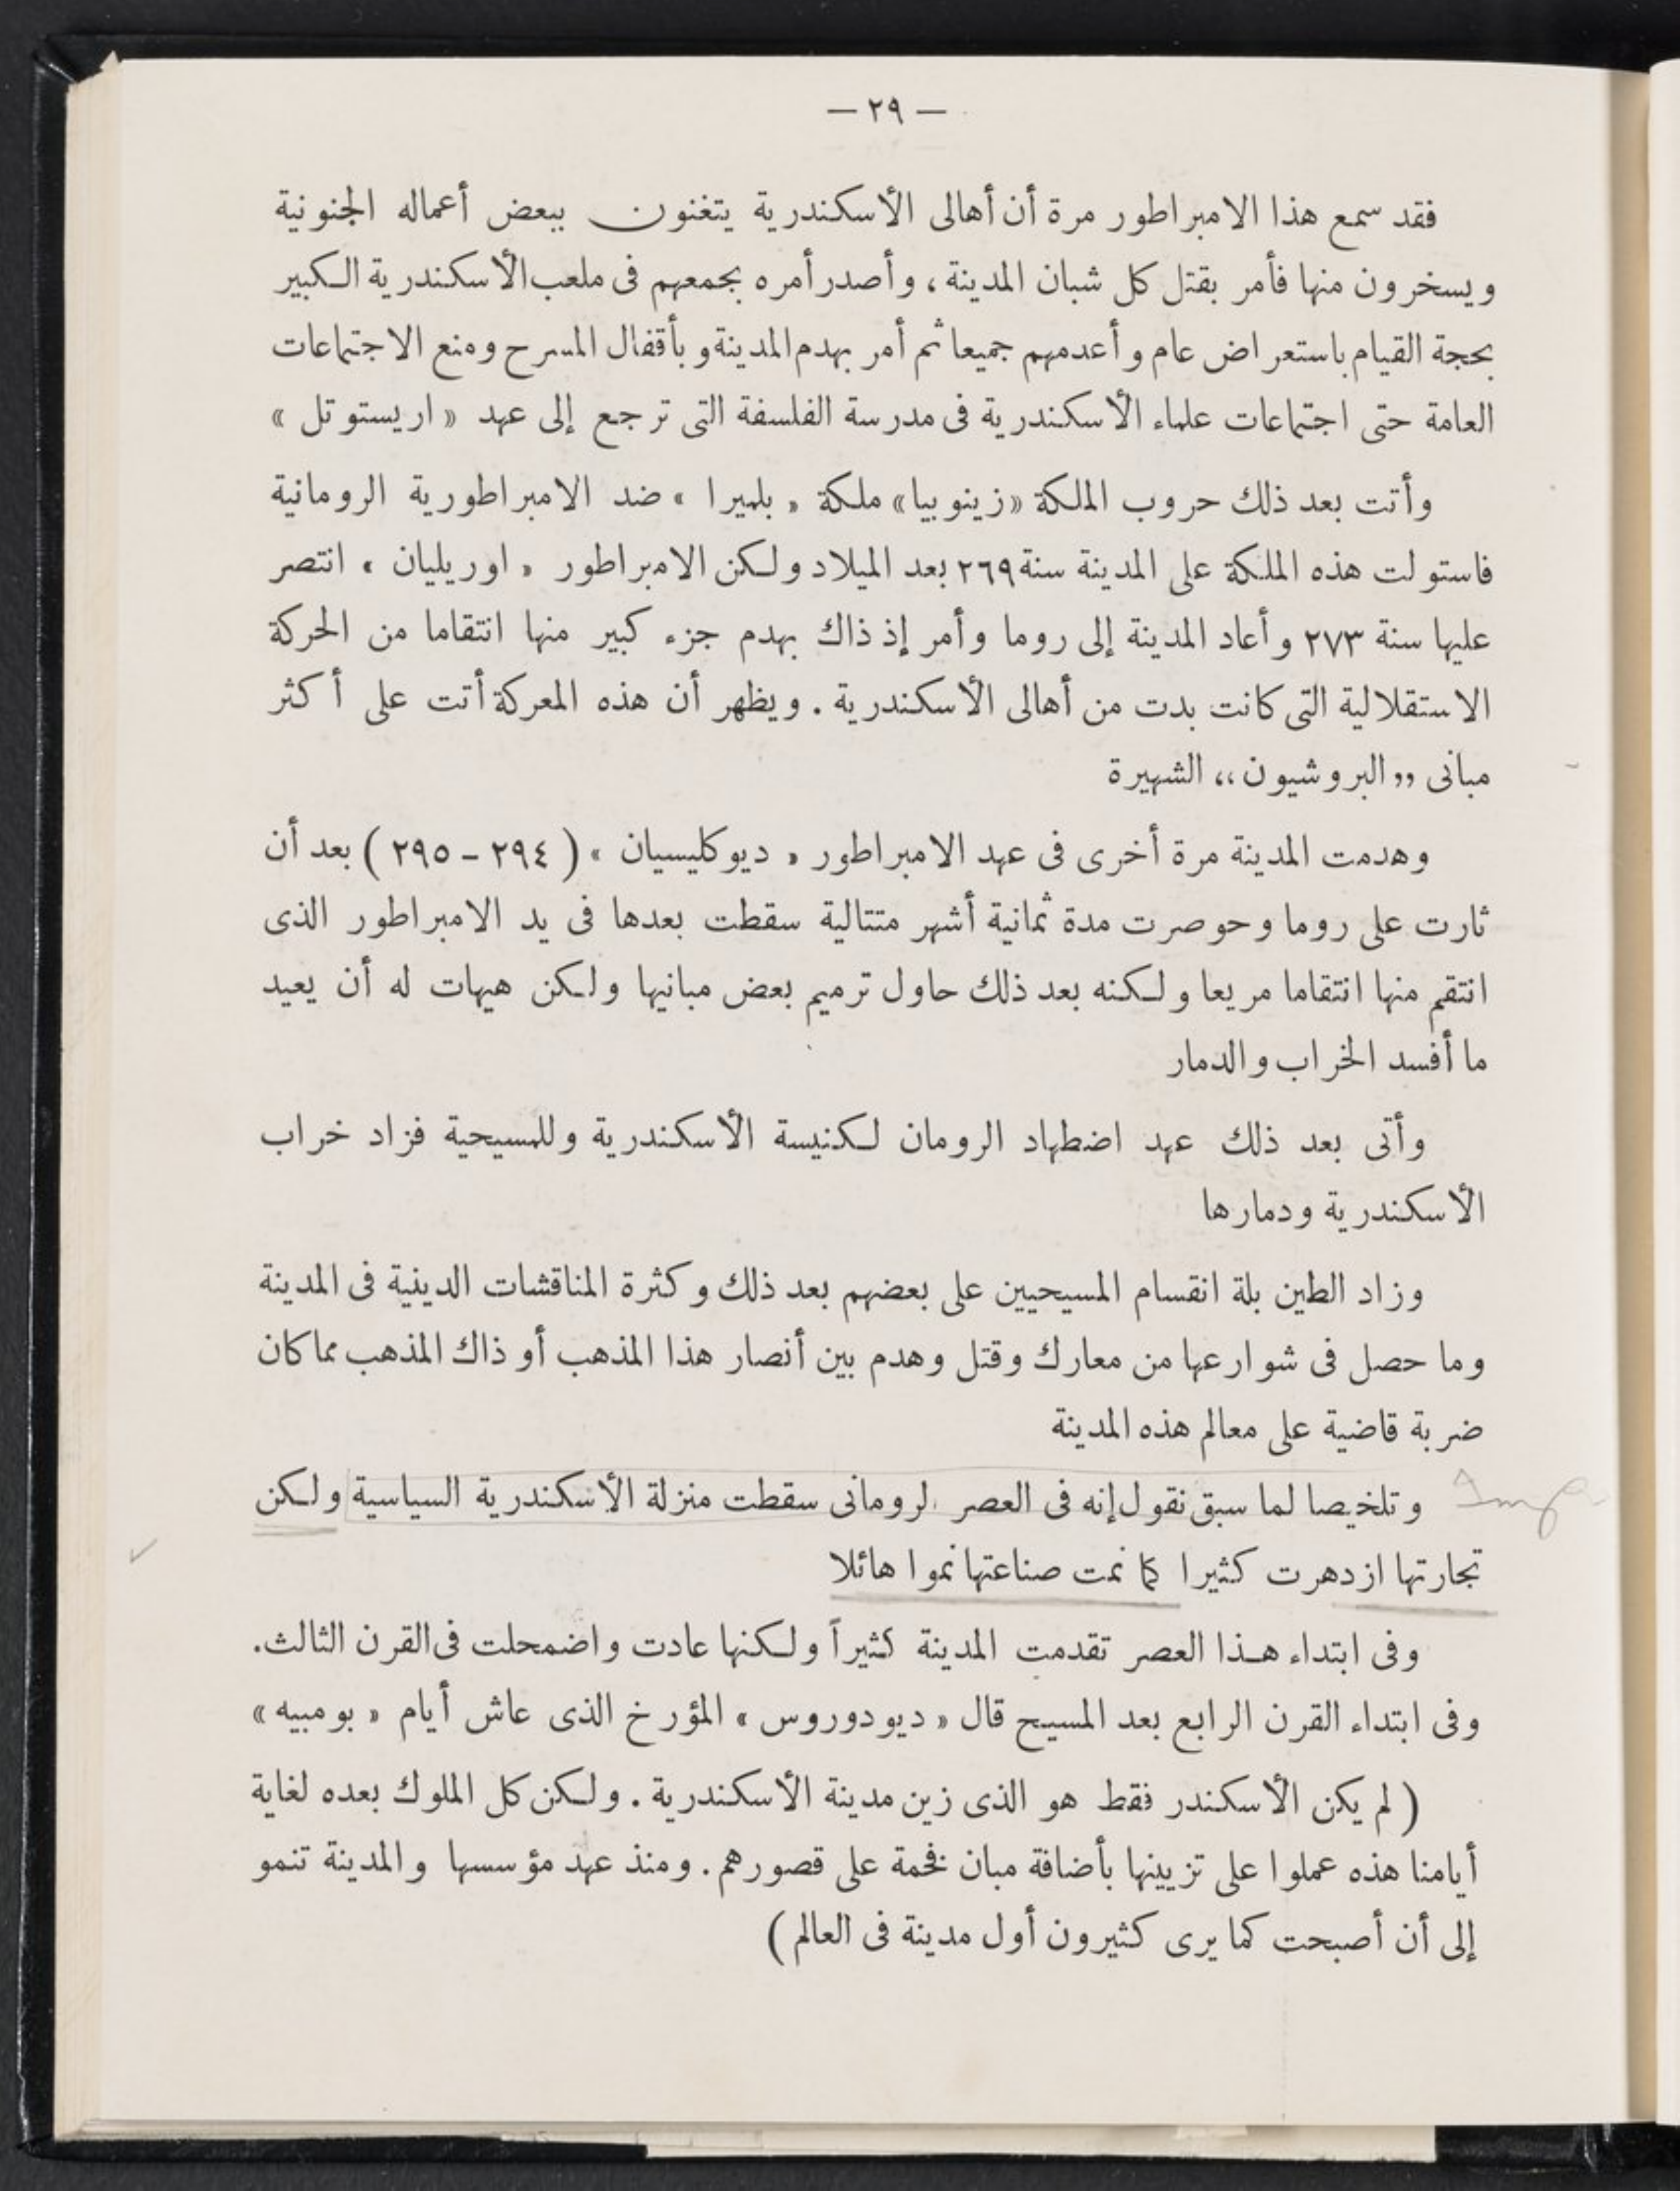 — ٢٩ —
فقد سمع هذا الامبراطور مرة أن أهالى الأسكندرية يتغنون ببعض أعماله الجنونية
ويسخرون منها فأمر بقتل كل شبان المدينة ، وأصدر أمره بجمعهم فى ملعب الأسكندرية الكبير
بحجة القيام باستعراض عام وأعدمهم جميعا ثم أمر بهدم المدينة و بأقفال المسرح ومنع الاجتماعات
العامة حتى اجتماعات علماء الأسكندرية فى مدرسة الفلسفة التى ترجع إلى عهد « اريستوتل »
وأتت بعد ذلك حروب الملكة «زينوبيا» ملكة « بلميرا » ضد الامبراطورية الرومانية
فاستولت هذه الملكة على المدينة سنة ٢٦٩ بعد الميلاد ولكن الامبراطور « اوريليان » انتصر
عليها سنة ٢٧٣ وأعاد المدينة إلى روما وأمر إذ ذاك بهدم جزء كبير منها انتقاما من الحركة
الاستقلالية التى كانت بدت من أهالى الأسكندرية . ويظهر أن هذه المعركة أتت على أكثر
مبانى ,, البروشيون ،، الشهيرة
وهدمت المدينة مرة أخرى فى عهد الامبراطور « ديوكليسيان » ( ٢٩٤ - ٢٩٥ ) بعد أن
ثارت على روما وحوصرت مدة ثمانية أشهر متتالية سقطت بعدها فى يد الامبراطور الذى
انتقم منها انتقاما مريعا ولكنه بعد ذلك حاول ترميم بعض مبانيها ولكن هيهات له أن يعيد
ما أفسد الخراب والدمار
وأتى بعد ذلك عهد اضطهاد الرومان لكنيسة الأسكندرية وللمسيحية فزاد خراب
الأسكندرية ودمارها
وزاد الطين بلة انقسام المسيحيين على بعضهم بعد ذلك وكثرة المناقشات الدينية فى المدينة
وما حصل فى شوارعها من معارك وقتل وهدم بين أنصار هذا المذهب أو ذاك المذهب مما كان
ضربة قاضية على معالم هذه المدينة
وتلخيصا لما سبق نقول إنه فى العصر لرومانى سقطت منزلة الأسكندرية السياسية ولكن
تجارتها ازدهرت كثيرا كما نمت صناعتها نموا هائلا
وفى ابتداء هذا العصر تقدمت المدينة كثيراً ولكنها عادت واضمحلت فى القرن الثالث.
وفى ابتداء القرن الرابع بعد المسيح قال « ديودوروس » المؤرخ الذى عاش أيام « بومبيه »
( لم يكن الأسكندر فقط هو الذى زين مدينة الأسكندرية . ولكن كل الملوك بعده لغاية
أيامنا هذه عملوا على تزيينها بأضافة مبان فخمة على قصورهم . ومنذ عهد مؤسسها والمدينة تنمو
إلى أن أصبحت كما يرى كثيرون أول مدينة فى العالم )